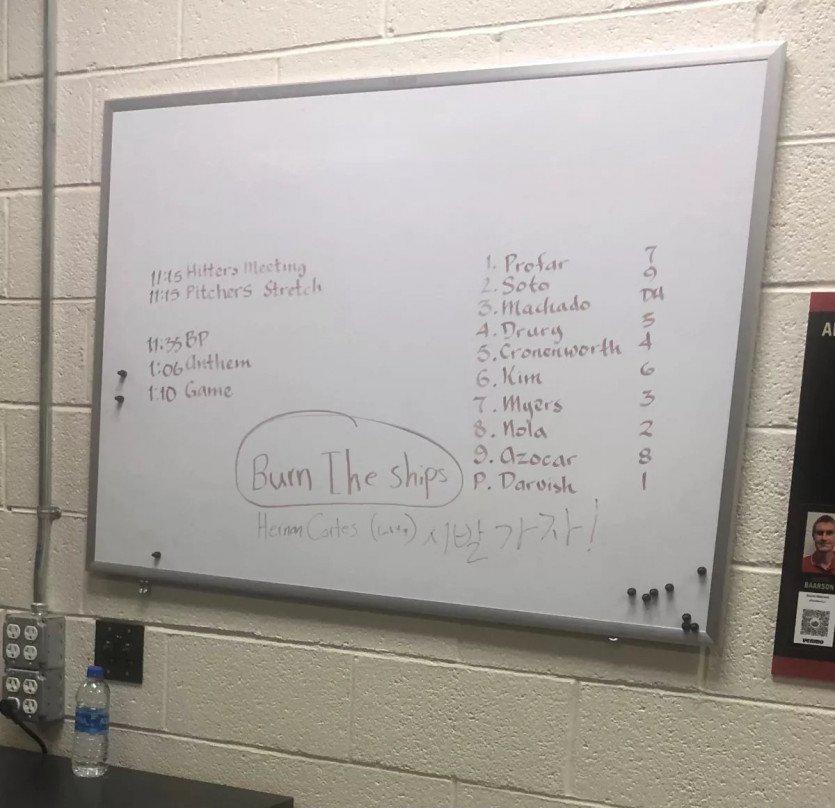 11:15 Hitters Meeting
11:15 Pitchers Stretch
11:35 BP
1:06 Anthem
1:10 Game
1. Profar 7
2. Soto 9
3. Machado DH
4. Drury 5
5. Cronenworth 4
6. Kim 6
7. Myers 3
8. Nola 2
9. Azocar 8
P. Darvish 1
Burn The ships
Hernan Cortes
시발 가자!
A
BAARSON
venmo